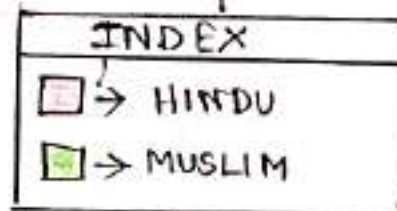 INDEX
→ HINDU
→ MUSLIM